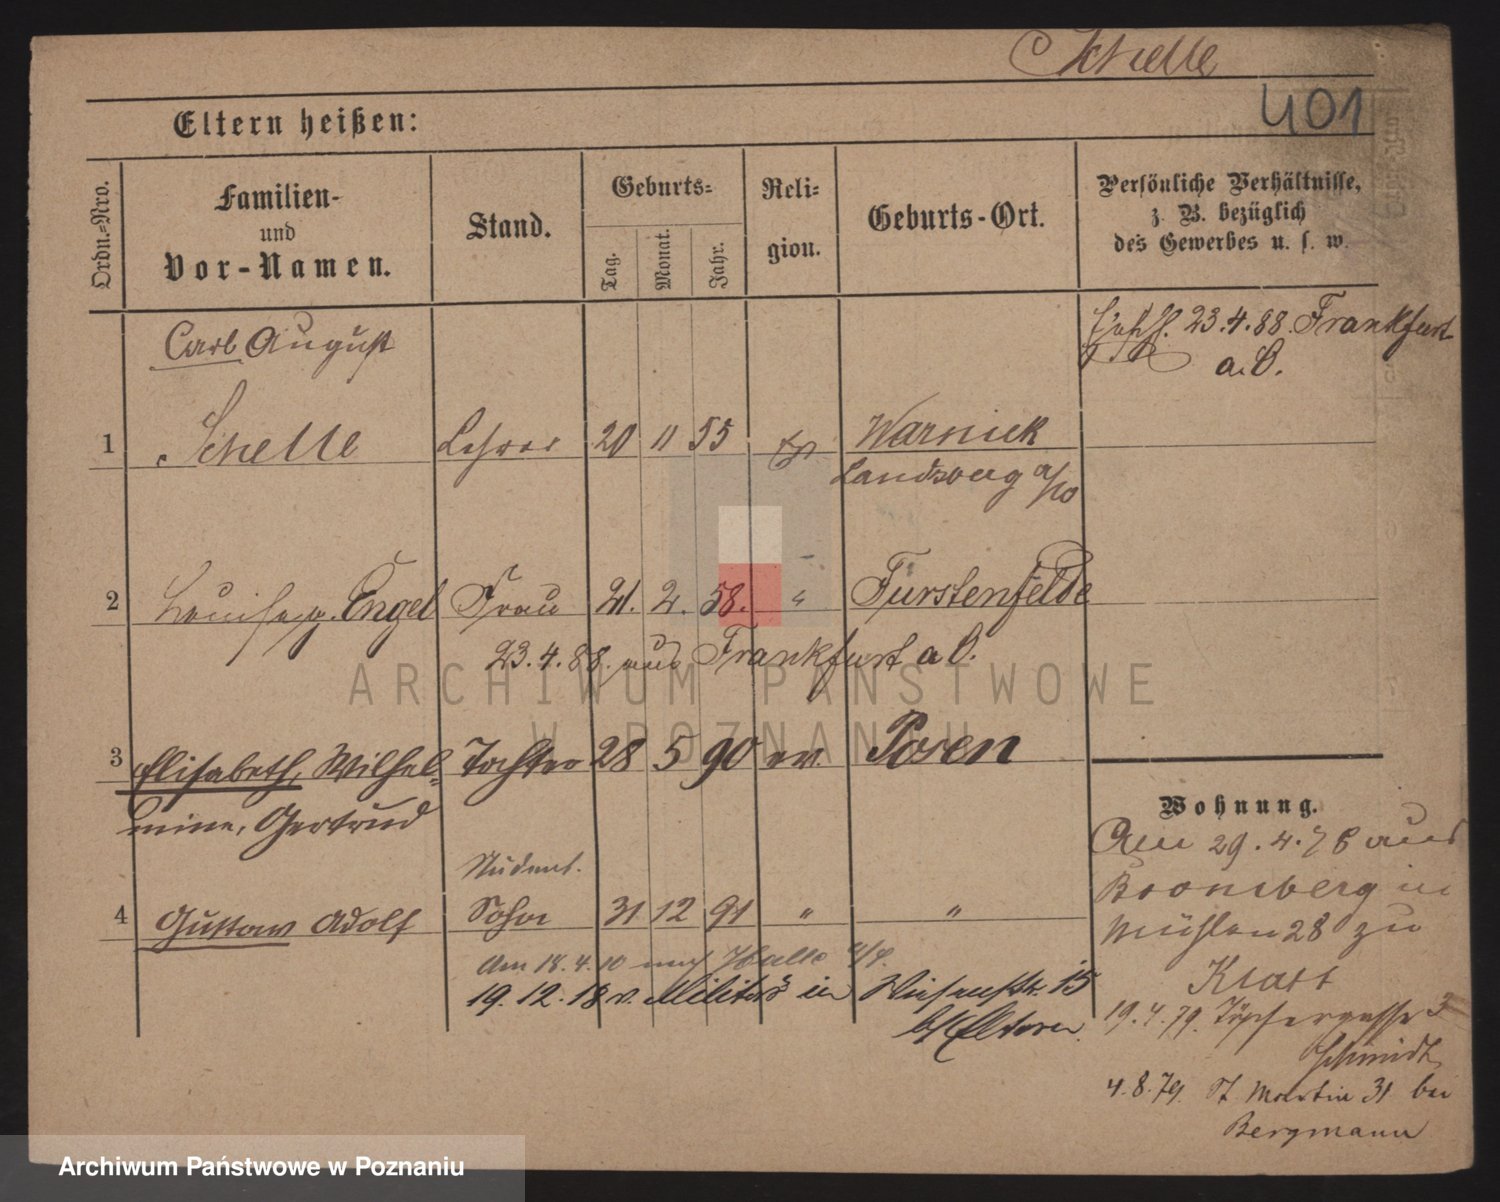 Schelle
401
Eltern heißen:
Ordn.-Nro.
Familien-
und
Vor-Namen.
Stand.
Geburts-
Tag.
Monat.
Jahr.
Reli-
gion.
Geburts-Ort.
Persönliche Verhältnisse,
z. B. bezüglich
des Gewerbes u. s. w.
Carl August
23.4.88. Frankfurt
a. O.
1 Schelle Lehrer 20 11 55 Warnick
Landsberg
2 Louise g. Engel Frau 21. 2. 58. " Fürstenfelde
23.4.88. aus Frankfurt a O.
3 Elisabeth, Wilhel- Tochter 28 5 90 ev. Posen
mine, Gertrud
Student.
4 Gustav Adolf Sohn 31 12 91 " "
Am 18.4.10 nach Halle a/S.
19.12.18 v. Militär in Wiesenstr. 15
b/Eltern.
Wohnung.
Am 29.4.78 aus
Bromberg in
Mühlen 28 zu
Klatt
19.4.79. Töpfergasse 3
Schmidt
4.8.79. St Martin 31 bei
Bergmann
ARCHIWUM PAŃSTWOWE
W POZNANIU
Archiwum Państwowe w Poznaniu